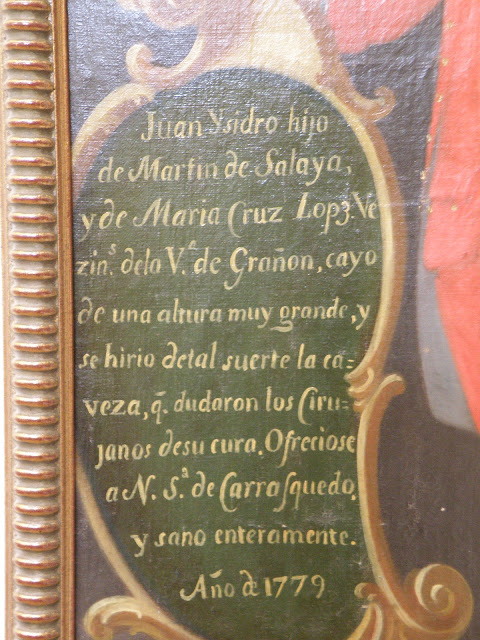 Juan Ysidro hijo
de Martin de Salaya,
y de Maria Cruz Lopz. Ve
zin.s dela V.a de Grañon, cayo
de una altura muy grande, y
se hirio detal suerte la ca=
veza, q̃. dudaron los Ciru=
janos desu cura. Ofreciose
a N. S.a de Carrasquedo,
y sano enteramente.
Año de 1779